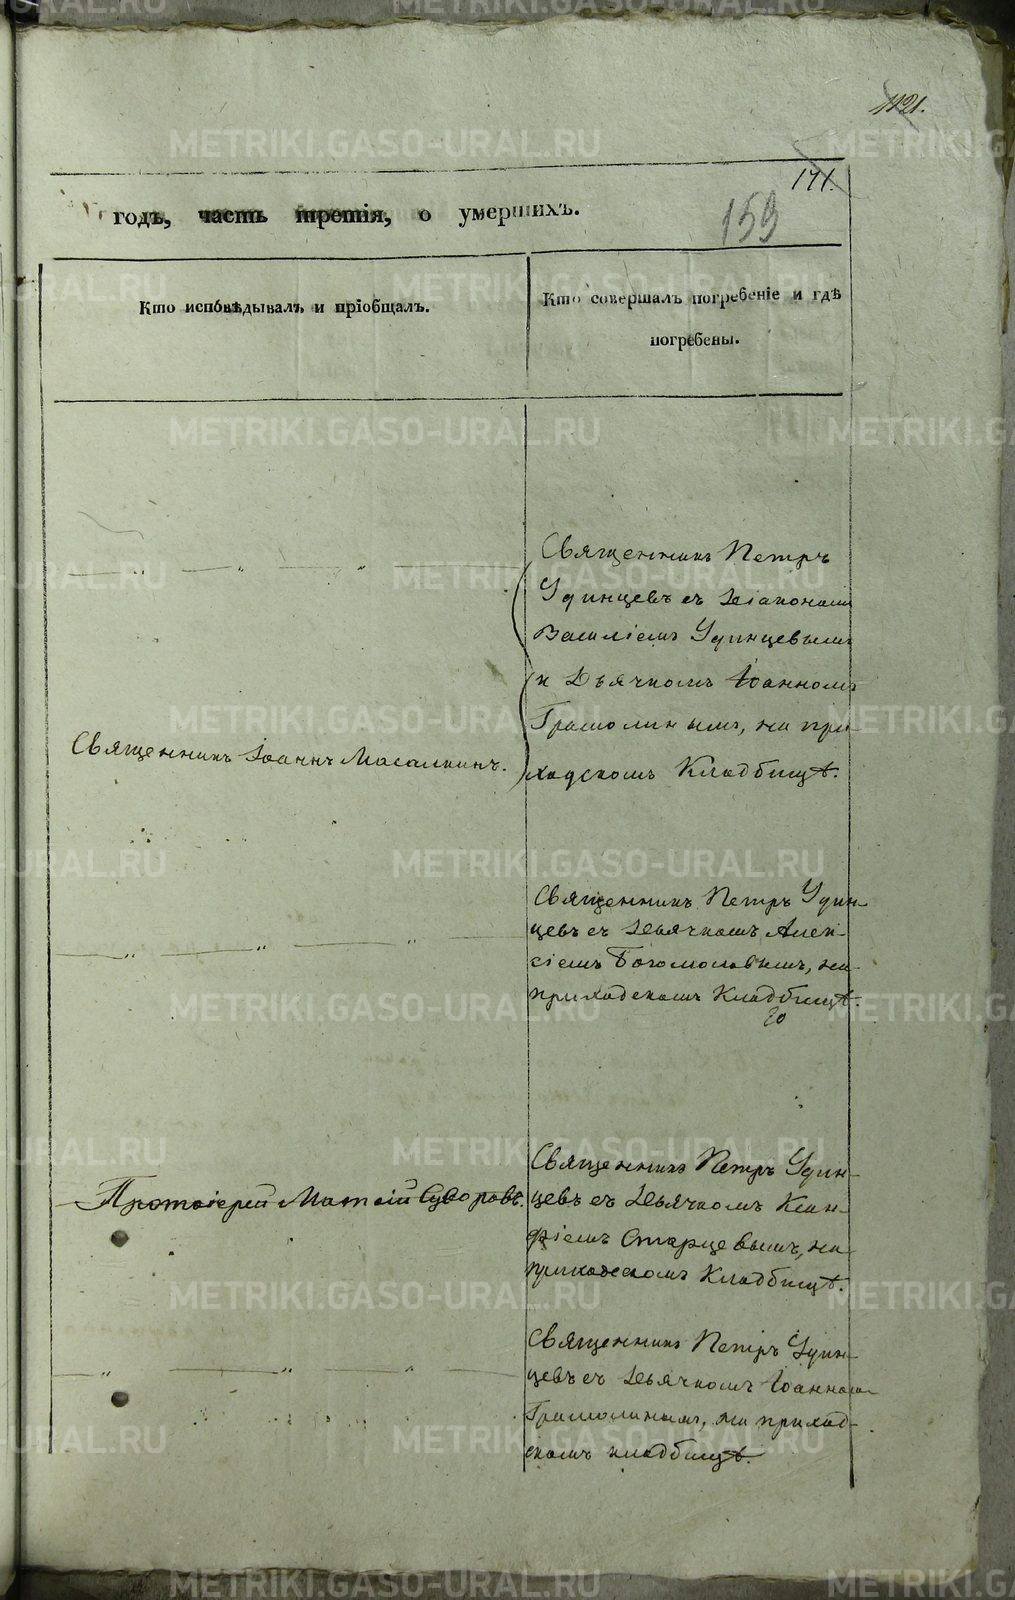 1121.
171.
159
годъ, часть третія, о умершихъ.
Кто исповѣдывалъ и пріобщалъ.
Кто совершалъ погребеніе и гдѣ
погребены.
Священникъ Петръ
Удинцевъ съ Діакономъ
Василіемъ Удинцевымъ
и Дьячкомъ Іоанномъ
Грамолинымъ, на при-
ходскомъ Кладбищѣ.
Священникъ Іоаннъ Масалкинъ.
Священникъ Петръ Удин-
цевъ съ Дьячкомъ Алек-
сіемъ Богомоловымъ, на
приходскомъ Кладбищѣ.
Священникъ Петръ Удин-
цевъ съ Дьячкомъ Ксан-
фіемъ Старцевымъ, на
приходскомъ Кладбищѣ.
Протоіерей Матѳій Суворовъ.
Священникъ Петръ Удин-
цевъ съ Дьячкомъ Іоанномъ
Грамолинымъ, на приход-
скомъ кладбищѣ.
METRIKI.GASO-URAL.RU